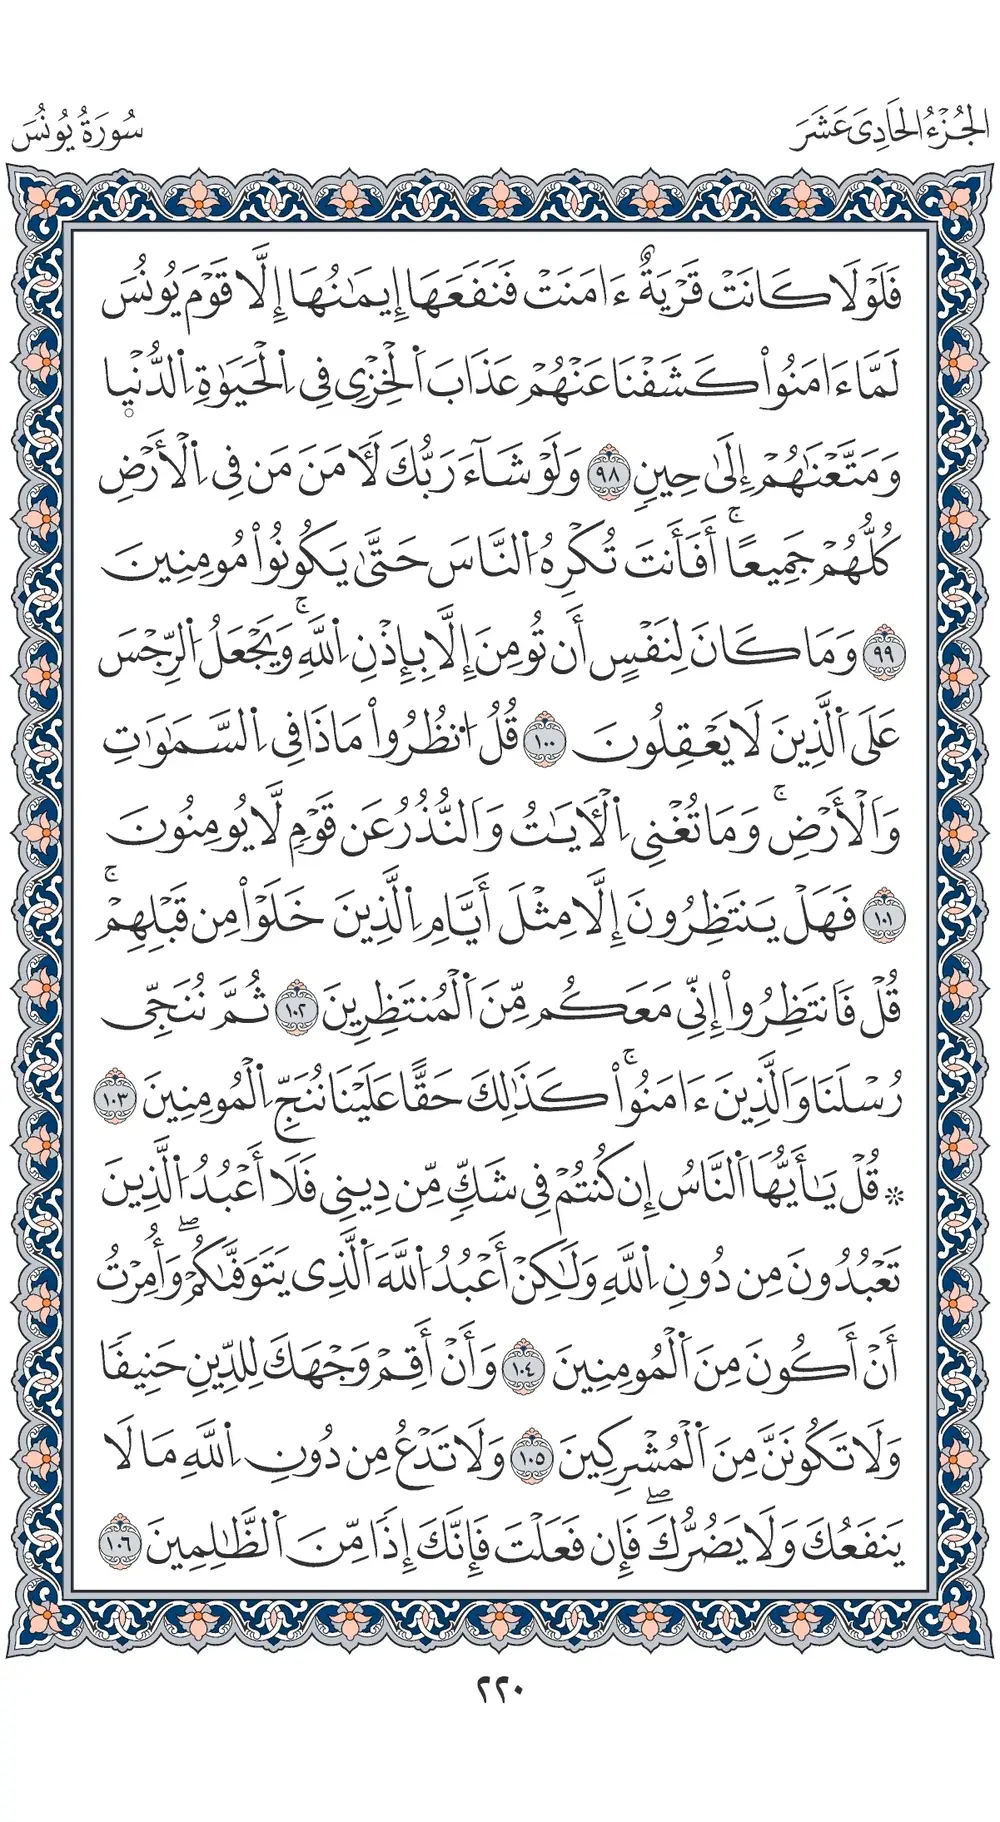 الجُزْءُ الحَادِيَ عَشَرَ
سُورَةُ يُونُسَ
فَلَوْلَا كَانَتْ قَرْيَةٌ ءَامَنَتْ فَنَفَعَهَا إِيمَٰنُهَا إِلَّا قَوْمَ يُونُسَ
لَمَّا ءَامَنُوا۟ كَشَفْنَا عَنْهُمْ عَذَابَ اَ۬لْخِزْيِ فِي اِ۬لْحَيَوٰةِ اِ۬لدُّنْي۪ا
وَمَتَّعْنَٰهُمْ إِلَىٰ حِينٍ ٩٨ وَلَوْ شَآءَ رَبُّكَ لَأٓمَنَ مَن فِي اِ۬لْأَرْضِ
كُلُّهُمْ جَمِيعًاۚ أَفَأَنتَ تُكْرِهُ اُ۬لنَّاسَ حَتَّىٰ يَكُونُوا۟ مُومِنِينَ
٩٩ وَمَا كَانَ لِنَفْسٍ أَن تُومِنَ إِلَّا بِإِذْنِ اِ۬للَّهِۚ وَيَجْعَلُ اُ۬لرِّجْسَ
عَلَى اَ۬لَّذِينَ لَا يَعْقِلُونَ ١٠٠ قُلُ اُ۟نظُرُوا۟ مَاذَا فِي اِ۬لسَّمَٰوَٰتِ
وَالْأَرْضِۚ وَمَا تُغْنِي اِ۬لْأٓيَٰتُ وَالنُّذُرُ عَن قَوْمٍ لَّا يُومِنُونَ
١٠١ فَهَلْ يَنتَظِرُونَ إِلَّا مِثْلَ أَيَّامِ اِ۬لَّذِينَ خَلَوْا۟ مِن قَبْلِهِمْۚ
قُلْ فَانتَظِرُوا۟ إِنِّي مَعَكُم مِّنَ اَ۬لْمُنتَظِرِينَ ١٠٢ ثُمَّ نُنَجِّي
رُسْلَنَا وَالَّذِينَ ءَامَنُوا۟ۚ كَذَٰلِكَ حَقًّا عَلَيْنَا نُنَجِّ اِ۬لْمُومِنِينَ ١٠٣
۞ قُلْ يَٰٓأَيُّهَا اَ۬لنَّاسُ إِن كُنتُمْ فِي شَكٍّ مِّن دِينِي فَلَا أَعْبُدُ اُ۬لَّذِينَ
تَعْبُدُونَ مِن دُونِ اِ۬للَّهِ وَلَٰكِنْ أَعْبُدُ اُ۬للَّهَ اَ۬لَّذِي يَتَوَفَّىٰكُمْۖ وَأُمِرْتُ
أَنْ أَكُونَ مِنَ اَ۬لْمُومِنِينَ ١٠٤ وَأَنْ أَقِمْ وَجْهَكَ لِلدِّينِ حَنِيفًا
وَلَا تَكُونَنَّ مِنَ اَ۬لْمُشْرِكِينَ ١٠٥ وَلَا تَدْعُ مِن دُونِ اِ۬للَّهِ مَا لَا
يَنفَعُكَ وَلَا يَضُرُّكَۖ فَإِن فَعَلْتَ فَإِنَّكَ إِذًا مِّنَ اَ۬لظَّٰلِمِينَ ١٠٦
٢٢٠